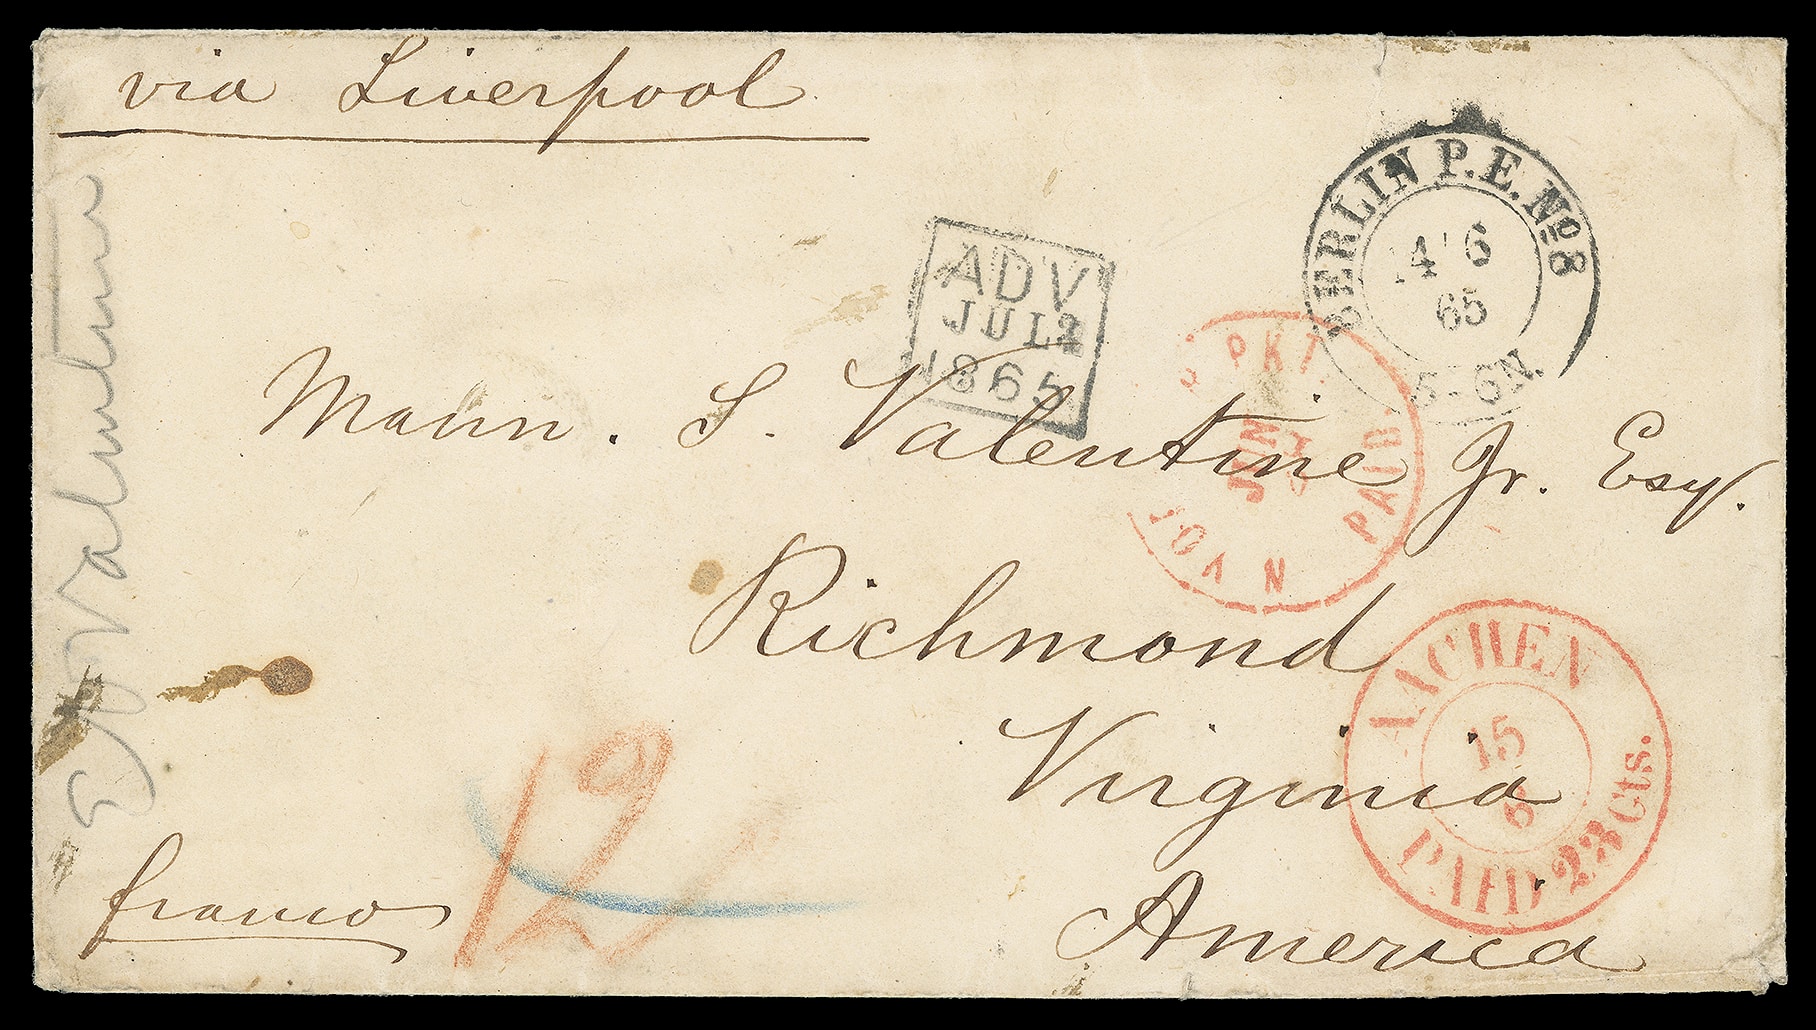 via Liverpool
BERLIN P.E. No 8
14 6
65
5-6N.
ADV
JUL 2
1865
PKT.
JUN
PAID.
N YOR
Mann. S. Valentine Jr. Esq.
Richmond
Virginia
America
AACHEN
15
6
PAID 23 Cts.
franco
12
E. V. Valentine